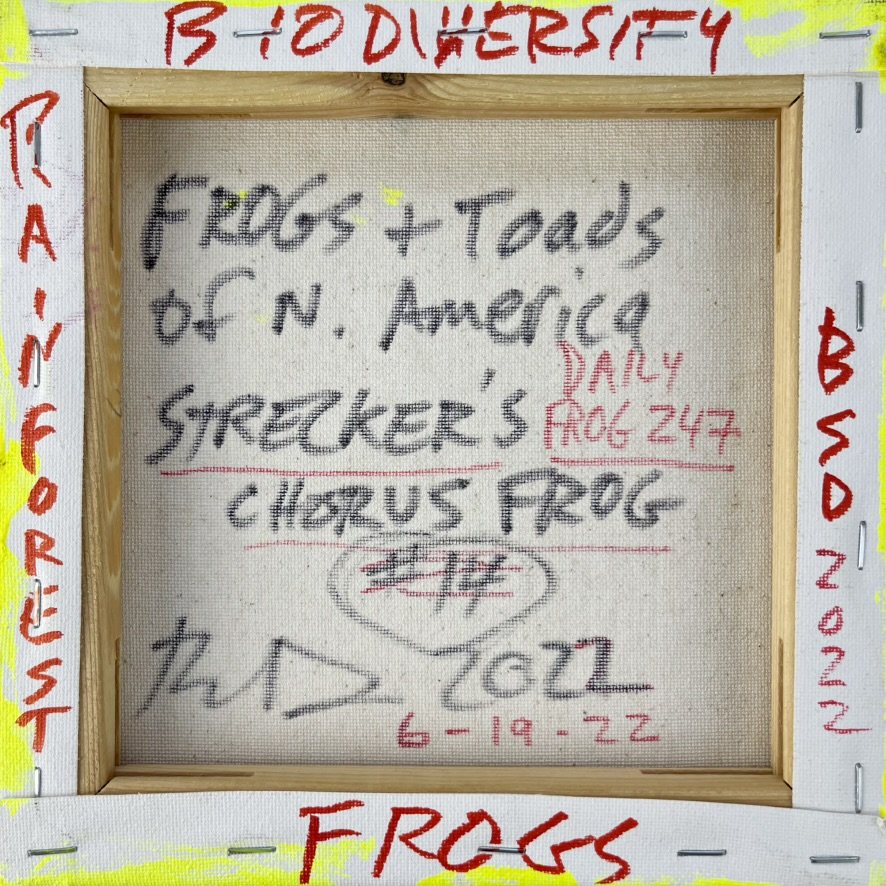 BIODIVERSITY
RAINFOREST
FROGS + Toads
of N. America
STRECKER'S
DAILY
FROG 247
CHORUS FROG
#14
2022
6-19-22
BSD 2022
FROGS